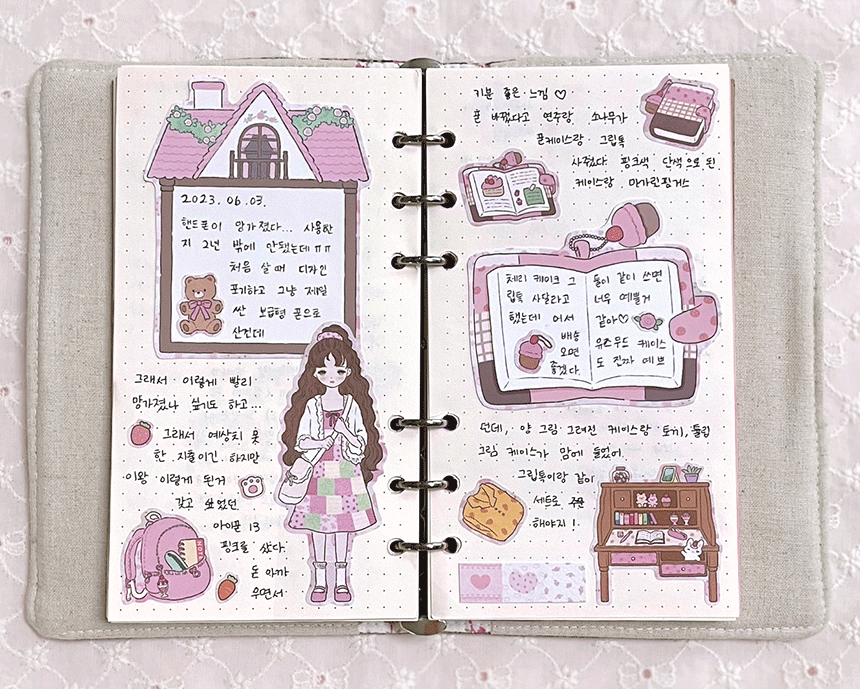 2023. 06. 03.
핸드폰이 망가졌다... 사용한
지 2년 밖에 안됐는데 ㅠㅠ
처음 살 때 디자인
포기하고 그냥 제일
싼 보급형 폰으로
산건데
그래서 이렇게 빨리
망가졌나 싶기도 하고...
그래서 예상치 못
한 지출이긴 하지만
이왕 이렇게 된거
갖고 싶었던
아이폰 13
핑크를 샀다
돈 아까
우면서
기분 좋은 느낌 ♡
폰 바꿨다고 연주랑 소나무가
폰케이스랑 그립톡
사줬다 핑크색 단색으로 된
케이스랑 마가린핑거스
체리 케이크 그
립톡 사달라고
했는데 어서
배송
오면
좋겠다
둘이 같이 쓰면
너무 예쁠거
같아♡
유즈우드 케이스
도 진짜 예쁘
던데, 양 그림 그려진 케이스랑 토끼, 튤립
그림 케이스가 맘에 들었어.
그립톡이랑 같이
세트로
해야지!